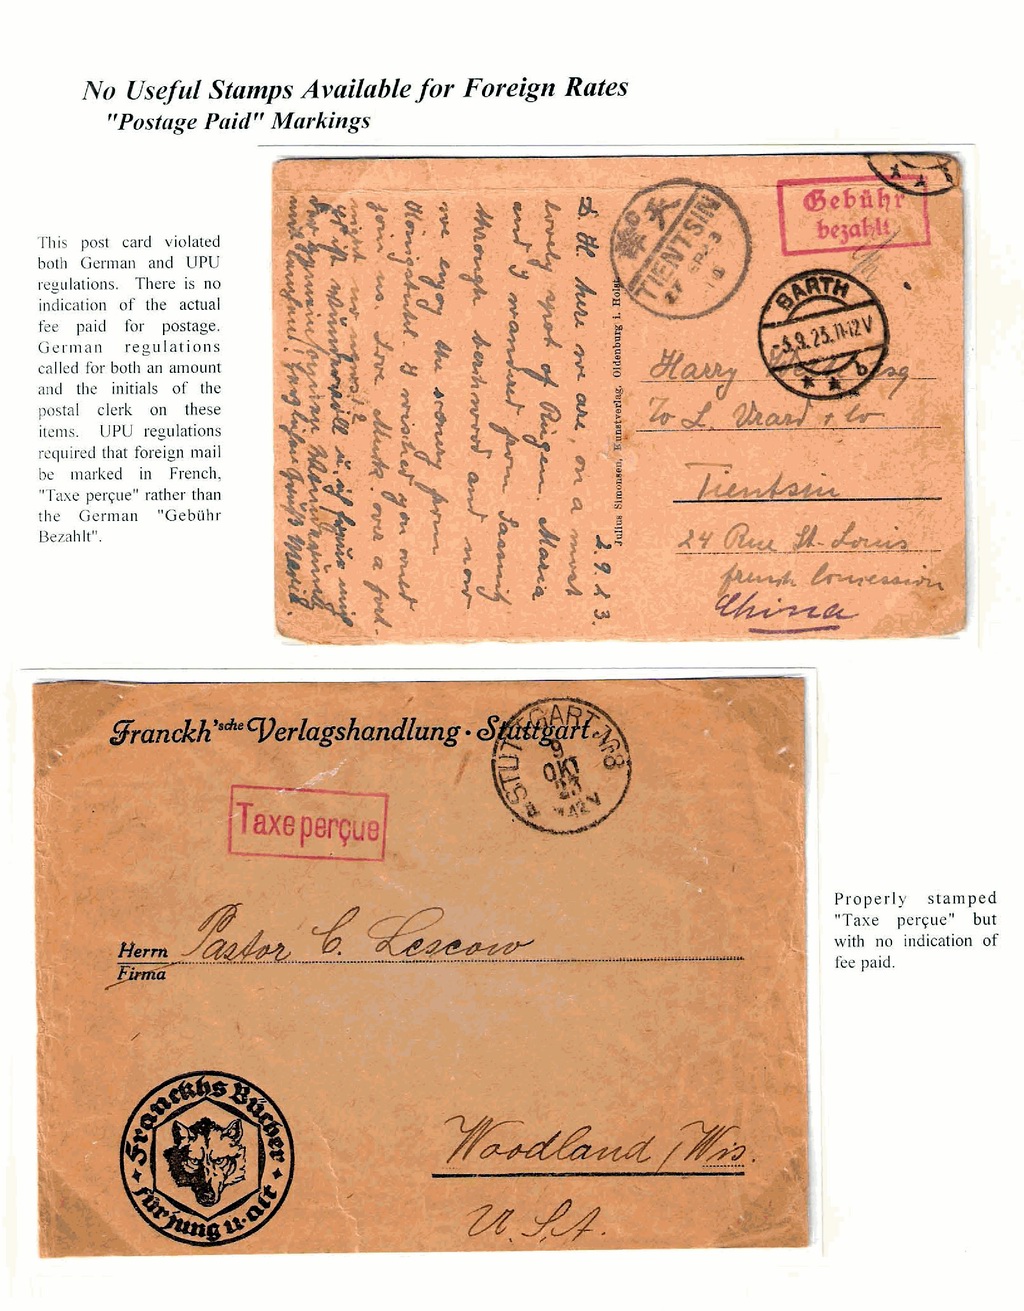 No Useful Stamps Available for Foreign Rates
"Postage Paid" Markings
This post card violated
both German and UPU
regulations. There is no
indication of the actual
fee paid for postage.
German regulations
called for both an amount
and the initials of the
postal clerk on these
items. UPU regulations
required that foreign mail
be marked in French,
"Taxe perçue" rather than
the German "Gebühr
Bezahlt".
Gebühr
bezahlt
TIENTSIN
27
BARTH
-3.9.23.11-12V
* * b
Harry
To L.
Tientsin
24 Rue St. Louis
french Concession
China
Julius Simonsen, Kunstverlag, Oldenburg i. Holst.
2.9.23.
D. H. here we are, on a most
lovely spot of Rügen. Maria
and I wandered from Sassnitz
through beechwood and now
we enjoy the scenery from
Königstuhl. I wished you could
join us. Love
Franckh'sche Verlagshandlung · Stuttgart
STUTTGART No8
9
OKT
23
Taxe perçue
Herrn Pastor C. Lescow
Firma
Woodland, Wis.
U.S.A.
Franckhs Bücher
für jung u. alt
Properly stamped
"Taxe perçue" but
with no indication of
fee paid.